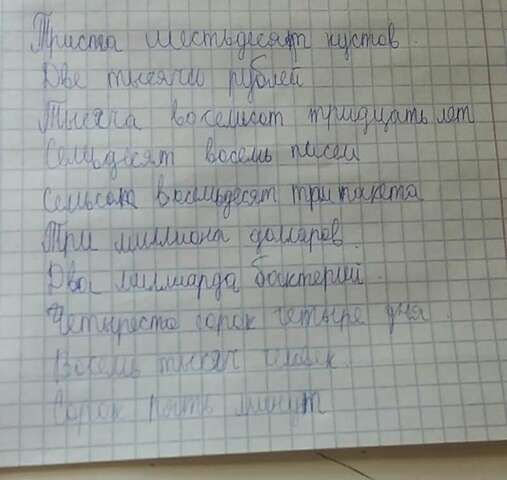 Триста шестьдесят кустов.
Две тысячи рублей
Тысяча восемьсот тридцать лет
Семьдесят восемь писем
восемьдесят три пакета
Три миллиона долларов.
Два миллиарда бактерий.
Четыреста сорок четыре дня.
Восемь тысяч
Сорок пять минут